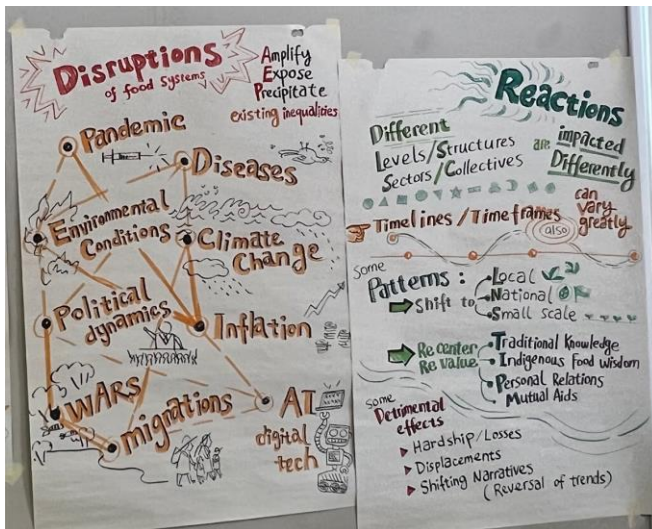 Disruptions
of food systems
Amplify
Expose
Precipitate
existing inequalities
Pandemic
Diseases
Environmental
Conditions
Climate
Change
Political
dynamics
Inflation
WARs
migrations
AI
digital
tech
Reactions
Different
Levels/Structures
Sectors/Collectives
are impacted
Differently
Timelines/Timeframes
can
also
vary
greatly
Some
Patterns:
Shift to
Local
National
Small scale
Re center
Re value
Traditional Knowledge
Indigenous Food wisdom
Personal Relations
Mutual Aids
Some
Detrimental
effects
Hardship/Losses
Displacements
Shifting Narratives
(Reversal of trends)